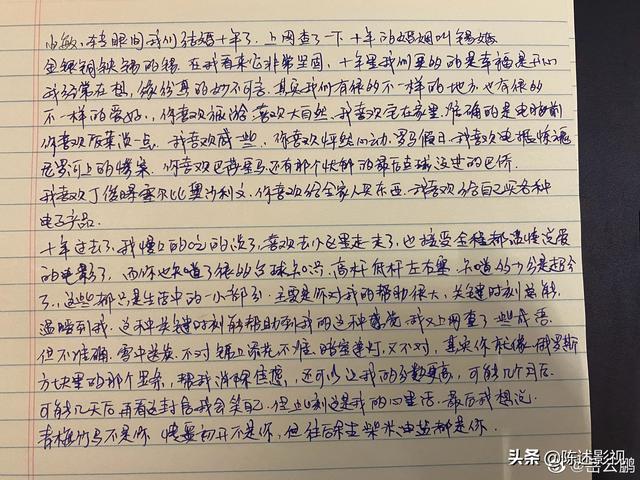 小敏,转眼间我们结婚十年了.上网查了一下十年的婚姻叫锡婚
金银铜铁锡的锡.在我看来它非常坚固,十年里我们更多的是幸福是开心
我经常在想,缘份真的妙不可言.其实我们有很多不一样的地方也有很多
不一样的爱好.你喜欢旅游喜欢大自然.我喜欢宅在家里.准确的是电脑前
你喜欢饭菜淡一点.我喜欢咸一些.你喜欢怦然心动.罗马假日.我喜欢电锯惊魂
尼罗河上的惨案.你喜欢巴蒂罗马还有那个快的最后点球没进的巴乔
我喜欢丁俊晖塞尔比奥沙利文.你喜欢给全家人买东西.我喜欢给自己买各种
电子产品.
十年过去了.我慢慢的吃的淡了.喜欢去小区里走走了.也接受全程都温情没爱
的电影了.而你也知道了很多台球知识.高杆低杆左右塞.知道的十分是超分
了.这些都只是生活中的一小部分.主要是你对我的帮助很大,关键时刻总能
温暖到我.这种关键时刻能帮助到我的这种感觉.我又上网查了一些成语
但不准确.雪中送炭.不对锦上添花不准.暗室逢灯.又不对.其实你就像俄罗斯
方块里的那个竖条,帮我消除焦虑,还可以让我的分数变高,可能几个月后.
可能几天后再看这封信我会笑自己.但此刻这是我的心里话.最后我想说.
青梅竹马不是你 情窦初开不是你,但往后余生柴米油盐都是你.
头条@陈述影视
@岳云鹏